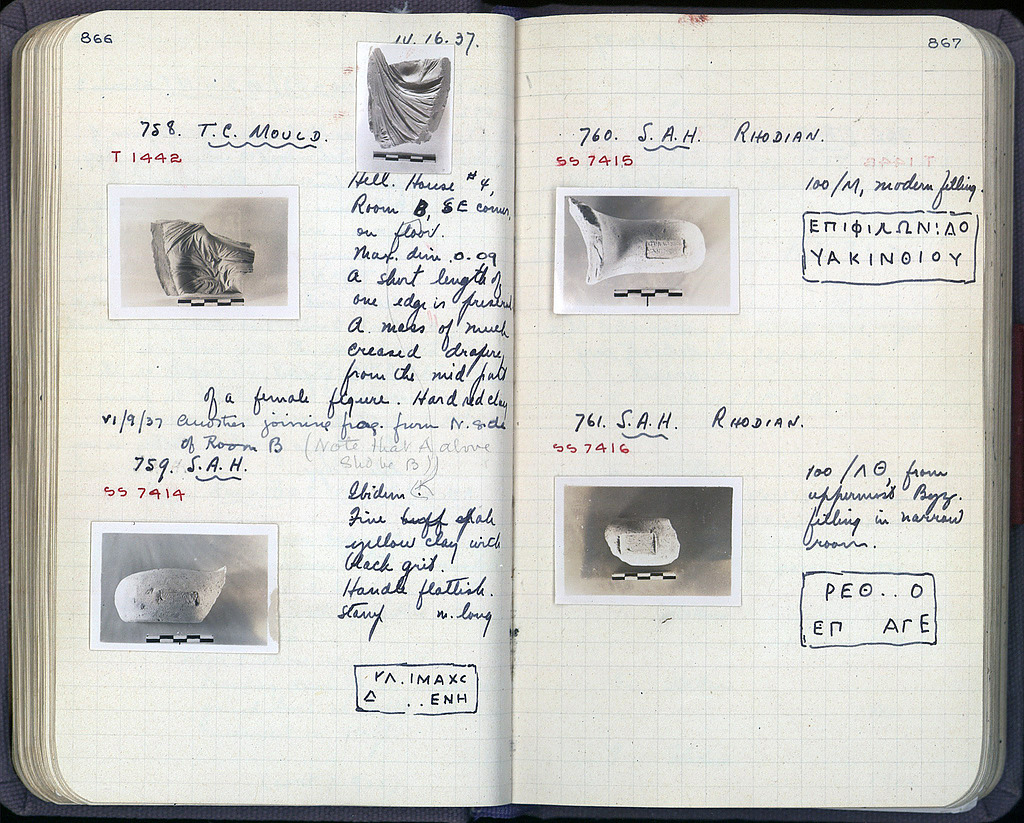 866
IV. 16. 37.
758. T.C. MOULD.
T 1442
Hell. House #4,
Room B, SE corner,
on floor.
Max. dim. 0.09
A short length of
one edge is preserved
A mass of much
creased drapery,
from the mid part
of a female figure. Hard red clay
VI/9/37 Another joining frag. from N. side
of Room B (Note that A above
Shd be B)
759. S.A.H.
SS 7414
Ibidem.
Fine buff pale
yellow clay with
black grit.
Handle flattish.
Stamp m. long
ΥΛ.ΙΜΑΧC
Δ ..ΕΝΗ
867
760. S.A.H. RHODIAN.
SS 7415
100/M, modern filling.
ΕΠΙΦΙΛΩΝΙΔΟ
ΥΑΚΙΝΘΙΟΥ
761. S.A.H. RHODIAN.
SS 7416
100/ΛΘ, from
uppermost Byz.
filling in narrow
room.
ΡΕΘ..Ο
ΕΠ ΑΓΕ